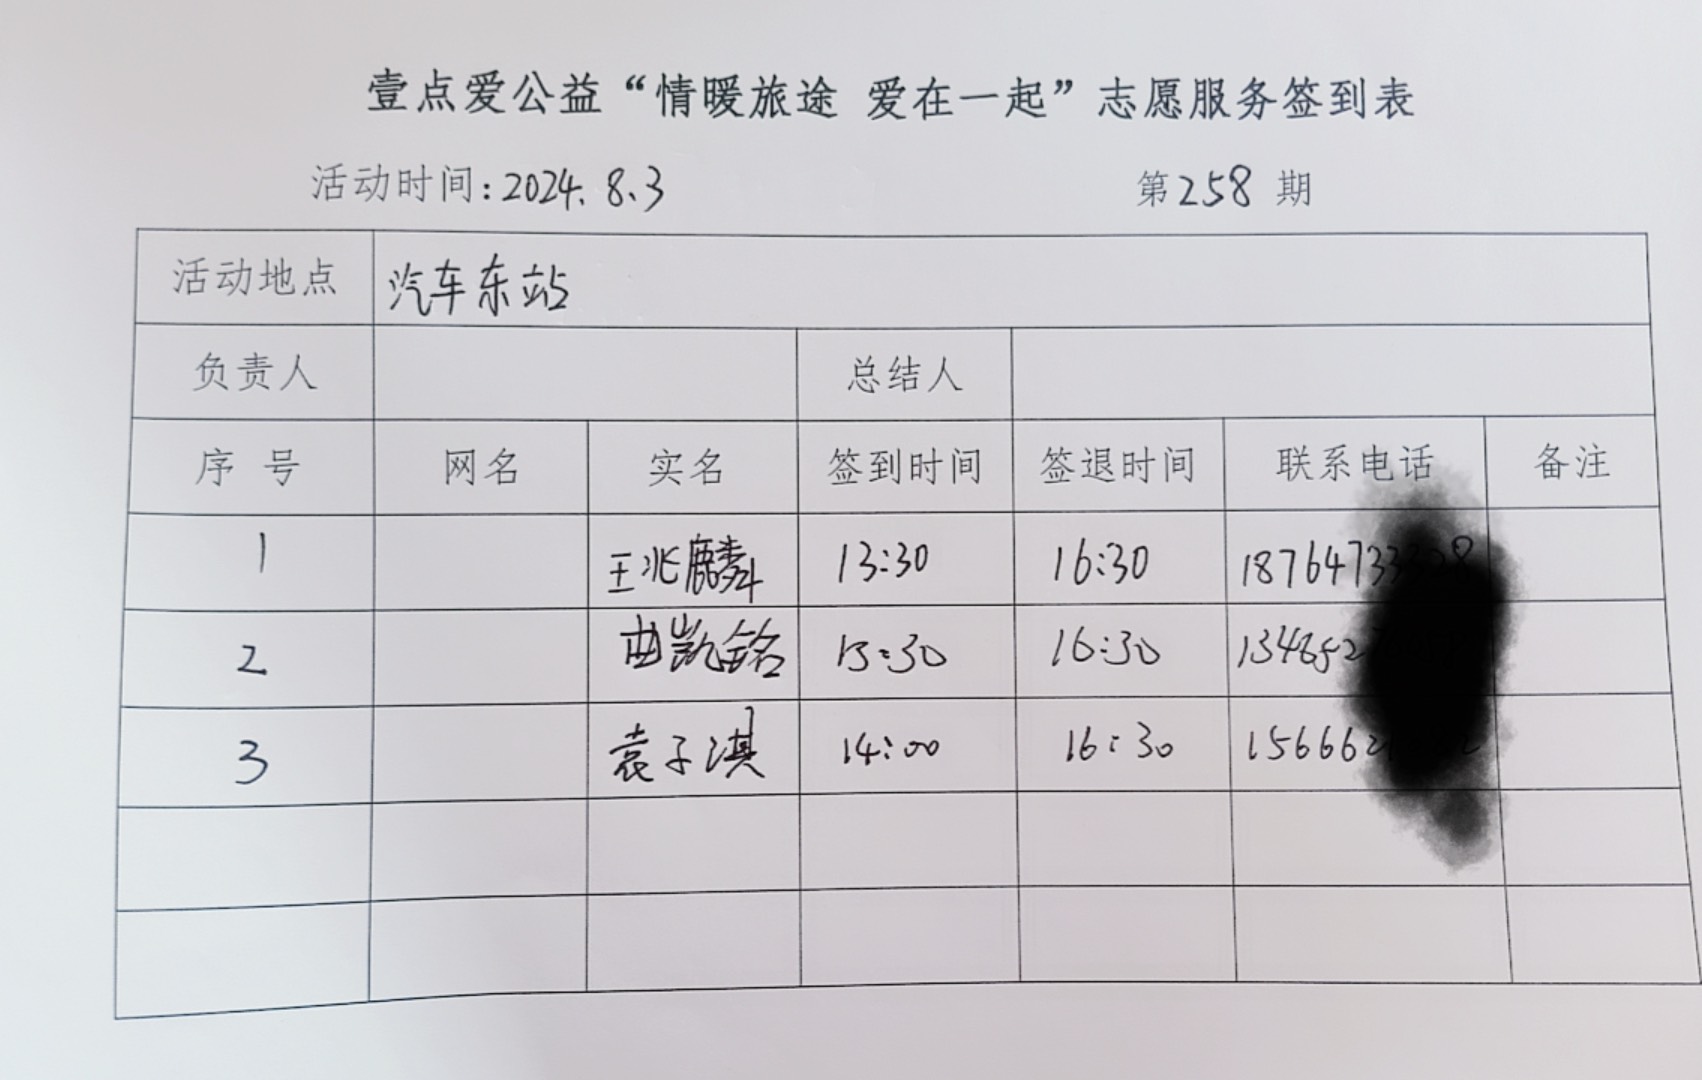 壹点爱公益“情暖旅途 爱在一起”志愿服务签到表
活动时间:2024.8.3 第258期
活动地点 汽车东站
负责人 总结人
序号 网名 实名 签到时间 签退时间 联系电话 备注
1 王兆麟 13:30 16:30
2 曲凯铭 13:30 16:30
3 袁子淇 14:00 16:30